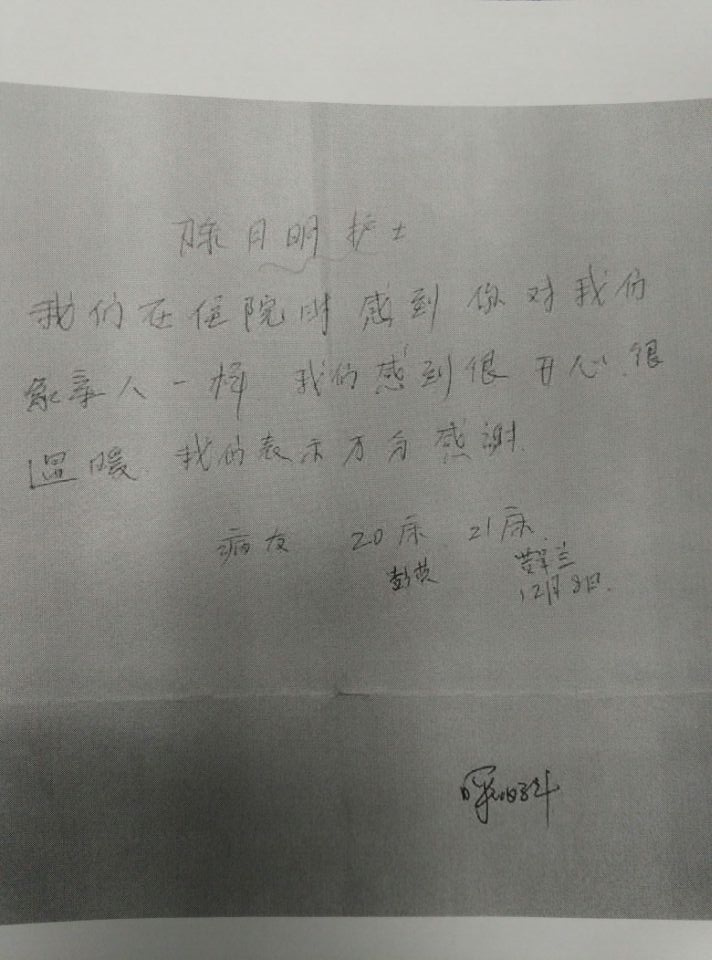 陈月明护士
我们在住院时感到你对我们
象亲人一样 我们感到很开心.很
温暖 我们表示万分感谢.
病友 20床 21床.
彭英 兰
12月8日.